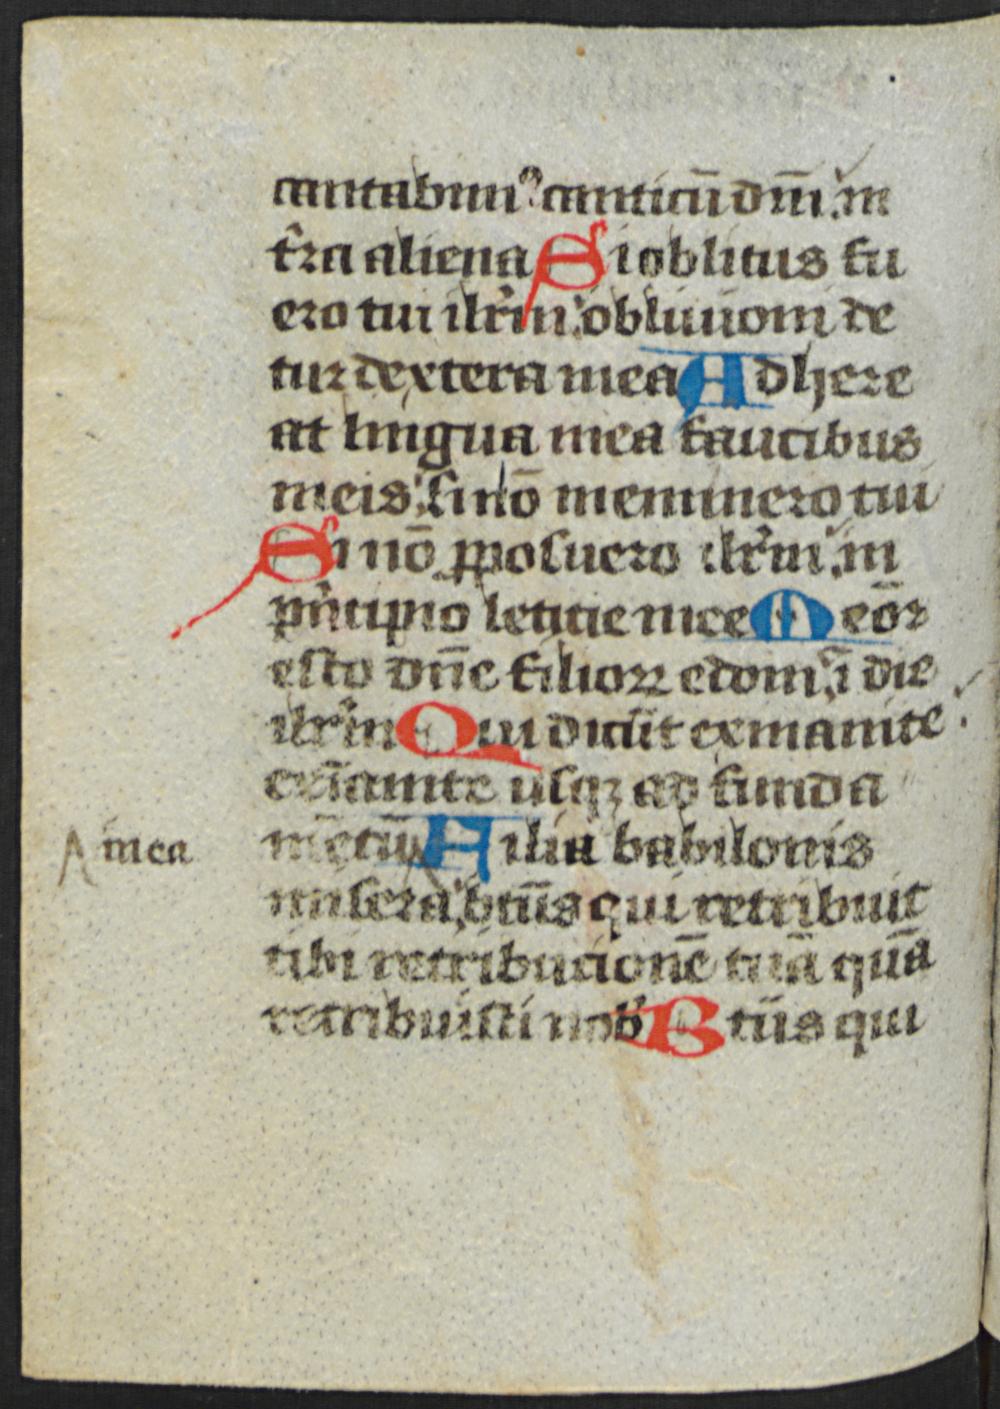 cantabimꝰ canticū dñi in
t̄ra aliena Si oblitus fu
ero tui ilr̄m obliuioni de
tur dextera mea Adhere
at lingua mea faucibus
meis si nō meminero tui
Si nō ꝓposuero ilr̄m in
pͥncipio letitie mee Meōr
esto dñe filioꝝ edom ī die
ilr̄m Qui dicūt exinanite
exīanite usqꝫ ad funda
mētū Filia babilonis
mea
misera btūs qui retribuit
tibi retribucionē tuā quā
retribuisti nob̄ Btūs qui